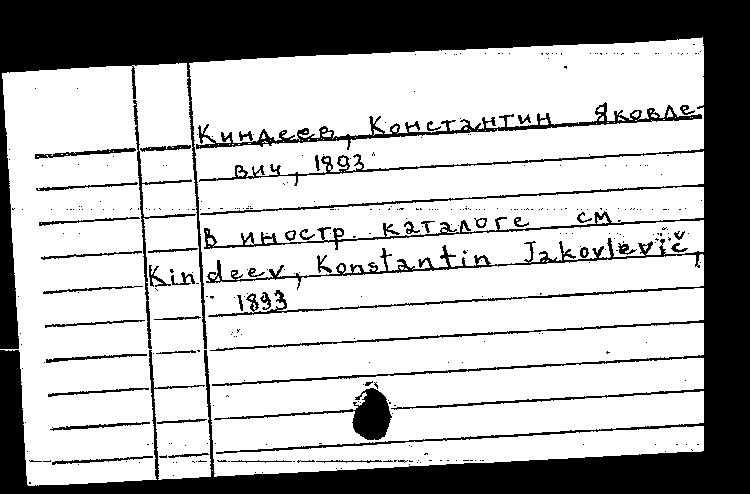 Киндеев, Константин Яковле-
вич, 1893
В иностр. каталоге см.
Kindeev, Konstantin Jakovlevič,
1893